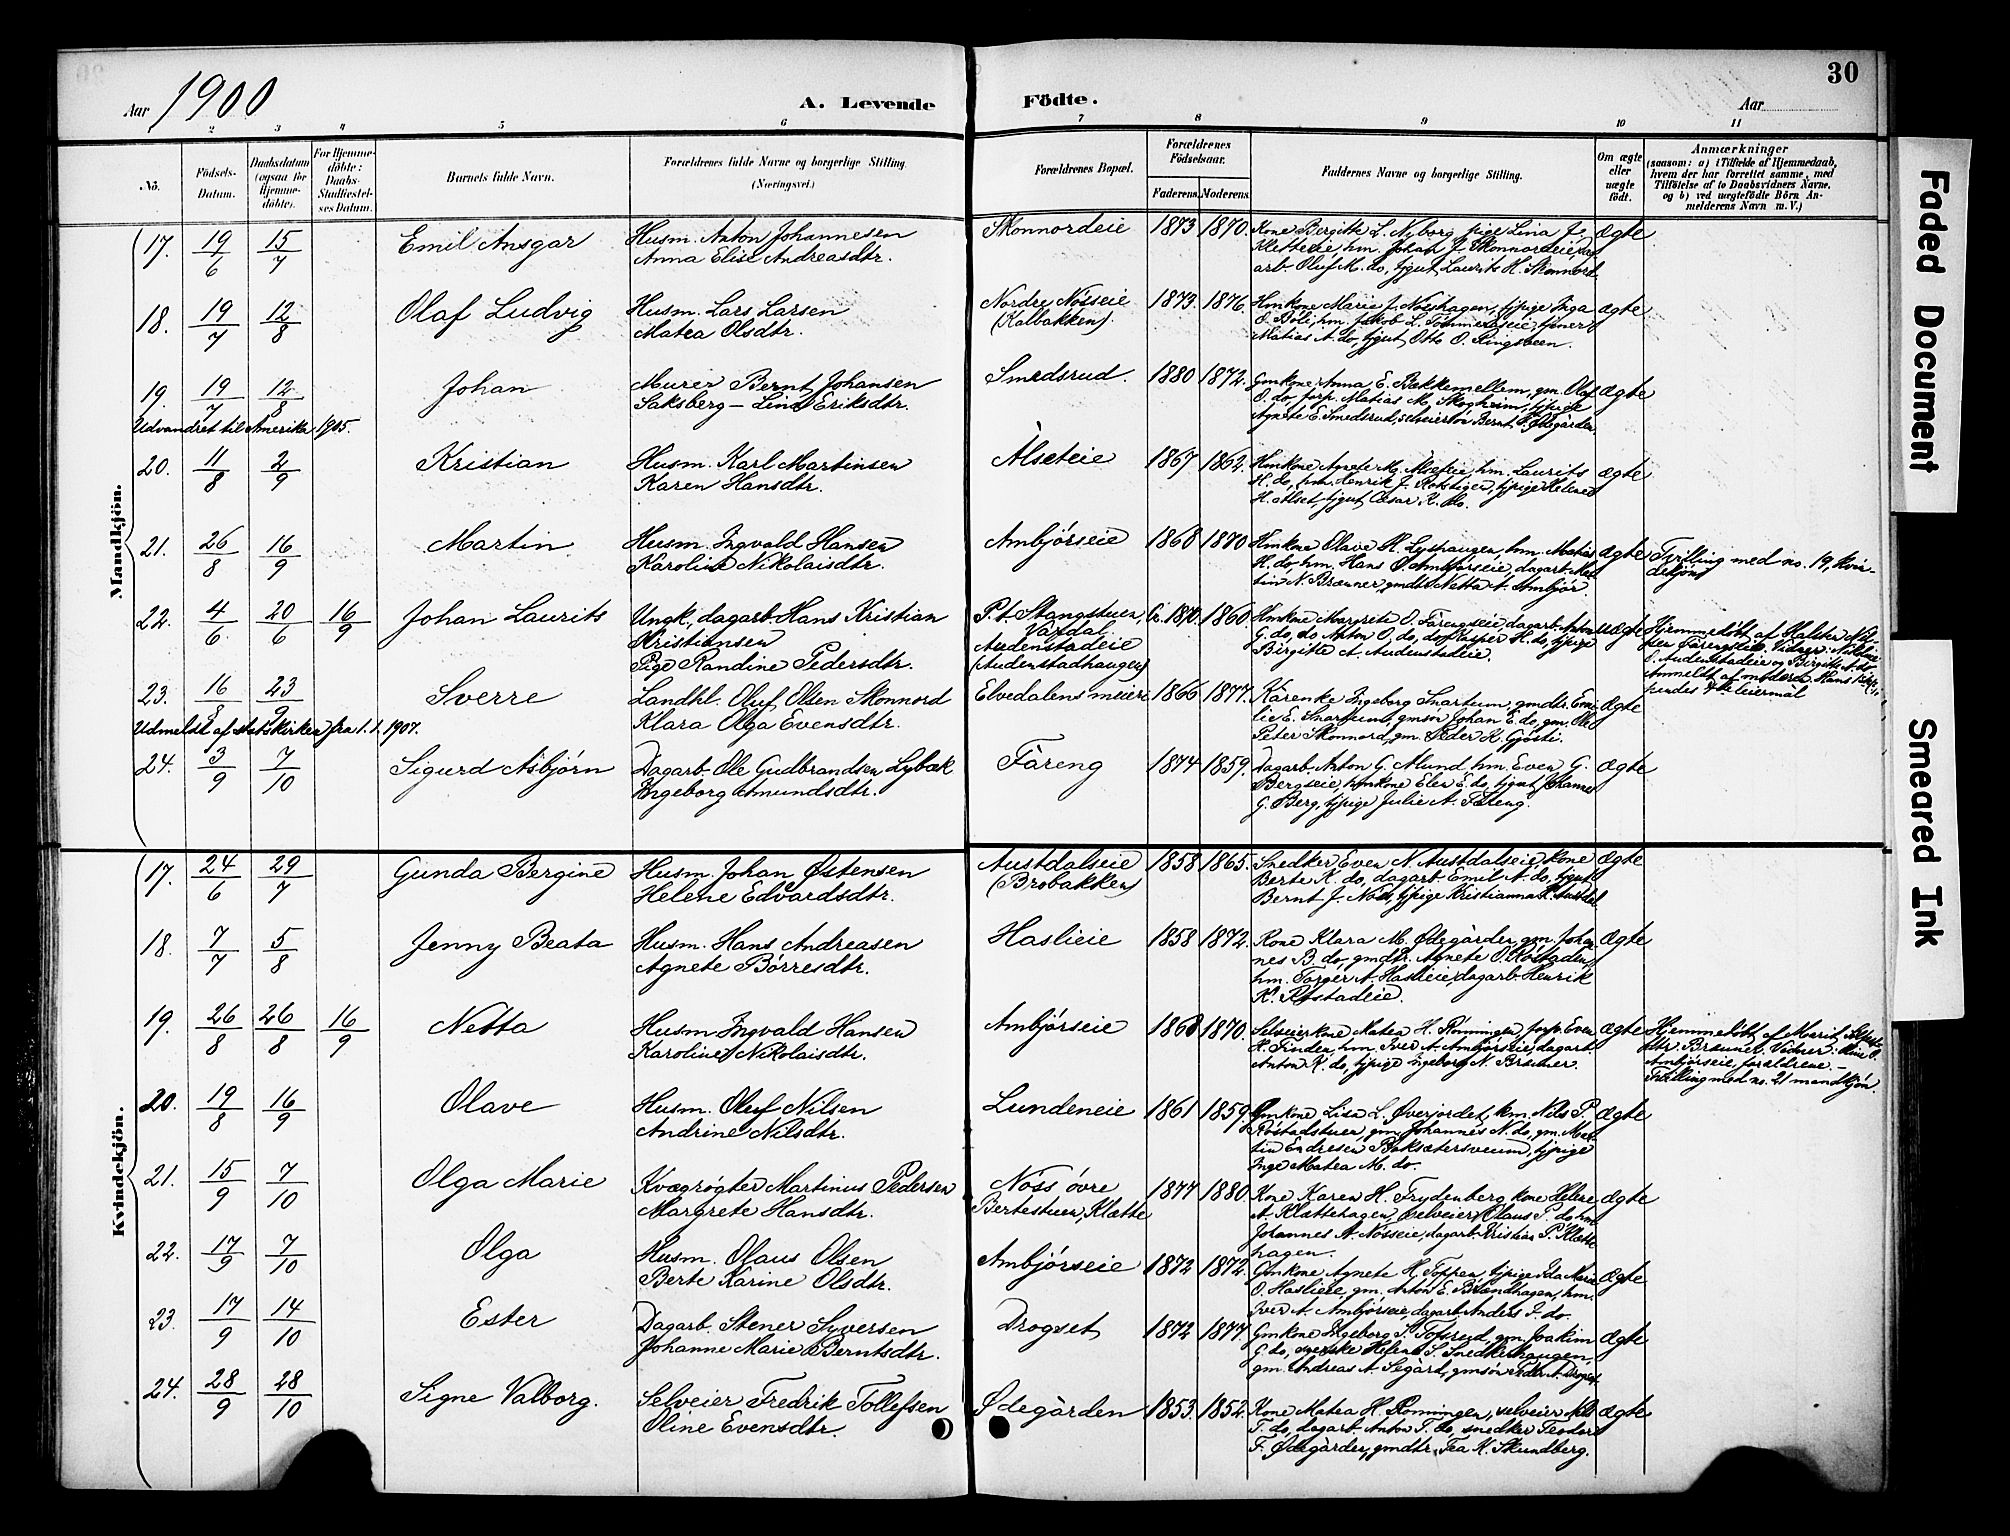 30
Aar 1900
A. Levende Födte.
Aar
2 3 4 5 6 7 8 9 10 11
No.
Födsels-Datum.
Daabsdatum (ogsaa for Hjemme-döbte).
For Hjemme-döbte: Daabs-Stadfæstelses Datum.
Barnets fulde Navn.
Forældrenes fulde Navne og borgerlige Stilling. (Næringsvei.)
Forældrenes Bopæl.
Forældrenes Födselsaar.
Faderens. Moderens.
Faddernes Navne og borgerlige Stilling.
Om ægte eller uægte födt.
Anmærkninger
(saasom: a) i Tilfælde af Hjemmedaab, hvem der har forrettet samme, med Tilföielse af to Daabsvidners Navne, og b) ved uægtefödte Börn Anmelderens Navn m. V.)
Mandkjön.
17. 19/6 15/7 Emil Ansgar
Husm. Anton Johannesen
Anna Elise Andreasdtr.
Skonnordeie 1873 1870.
Kone Birgitte L. Nyborg, pige Lina J.
Kletteeie, hm. Johan J. Skonnordeie, dag
arb. Oluf M. do, tjgut Laurits H. Skonnord
ægte
18. 19/7 12/8 Olaf Ludvig
Husm. Lars Larsen
Matea Olsdtr.
Nordre Nösseie
(Kalbakken). 1873. 1876.
Hmkone Marie J. Nösshagen, tjpige Inga
O. Böli, hm. Jakob L. Tömmeraaseie, tjener
Matias A. do, tjgut Otto O. Ringsveen.
ægte
19 19/7 12/8 Johan
Udvandret til Amerika 1905.
Murer Bernt Johansen
Saksberg – Lina Eriksdtr.
Smedsrud. 1880 1872.
Gmkone Anna E. Bakkemellem, gm. Olaf
O. do, forp. Matias M. Skogheim, tjpige
Agnete E. Smedsrud, selveiersön Bernt P. Ødegården.
ægte
20. 11/8 2/9 Kristian
Husm. Karl Martinsen
Karen Hansdtr.
Ålseteie 1867 1862.
Hmkone Agnete M. Alseteie, hm. Laurits
H. do, hm. Henrik J. Rolstigen, tjpige Helene
H. Alset, tjgut Cæsar K. do.
ægte
21. 26/8 16/9 Martin
Husm. Ingvald Hansen
Karoline Nikolaisdtr.
Ambjörseie 1868 1870
Hmkone Olave H. Lyshaugen, hm. Matias
H. do, hm. Hans O. Ambjörseie, dagarb. Mar
tin N. Brænner, gmdtr. Netta A. Ambjör.
ægte
Tvilling med no. 19, kvin-
dekjön
22. 4/6. 20/6 16/9 Johan Laurits
Ungk., dagarb. Hans Kristian
Kristiansen
Pige Randine Pedersdtr.
P.t. Stangstuen,
Vårdal
Audenstadeie
(Audenstadhaugen) Ca. 1870. 1860.
Hmkone Margrete O. Färengseie, dagarb. Anton
G. do, do Anton O. do, do Kasper H. do, tjpige
Birgitte A. Audenstadeie.
uægte
Hjemmedöbt af Halsten
Färengseie. Vidner: Nikolai
O. Audenstadeie og Birgitte A. do
Anmeldt af moderen Hans
leiermål
23. 16/8 23/9 Sverre
Udmeldt af statskirken fra 1.1.1907.
Landhl. Oluf Olsen Skonnord
Klara Olga Evensdtr.
Elvedalens meieri 1866 1877.
Kårenke Ingeborg Snartum, gmdtr. Emi-
lie E. Snartum, gmsön Johan E. do, gm. Ole
Peter Skonnord, gm. Peder K. Gjösti.
ægte
24. 3/9 7/10 Sigurd Asbjörn
Dagarb. Ole Gudbrandsen Lybæk
Ingeborg Amundsdtr.
Färeng 1874 1859.
Dagarb. Anton G. Alund, hm. Even G.
Bergseie, hmkone Elen E. do, tjgut Johannes
G. Berg, tjpige Julie A. Färeng.
ægte
Kvindekjön.
17. 24/6 29/7 Gunda Bergine
Husm. Johan Østensen
Helene Edvardsdtr.
Austdalseie
(Brobakken) 1858 1865.
Snedker Even N. Austdalseie, kone
Berte K. do, dagarb. Emil A. do, tjgut
Bernt J. Nöss, tjpige Kristianna K. Austdal
ægte
18. 7/7 5/8 Jenny Beata
Husm. Hans Andreasen
Agnete Börresdtr.
Haslieie 1858 1872.
Kone Klara M. Ødegården, gm. Johan
nes B. do, gmdtr. Agnete O. Röstaden,
hm. Torger A. Haslieie, dagarb. Henrik
K. Röstadeie.
ægte
19. 26/8 26/8 16/9 Netta
Husm. Ingvald Hansen
Karoline Nikolaisdtr.
Ambjörseie 1868 1870.
Selveierkone Matea H. Rönningen, forp. Even
H. Linden, hm. Iver A. Ambjörseie, dagarb.
Anton K. do, tjpige Ingeborg N. Brænner.
ægte
Hjemmedöbt af Marit
dtr. Brænner. Vidner: O.
Ambjörseie, forældrene. –
Tvilling med no. 21 mandkjön
20. 19/8 16/9 Olave
Husm. Oluf Nilsen
Andrine Nilsdtr.
Lundeneie 1861 1859.
Gmkone Lisa L. Øverjordet, hm. Nils P.
Röstadstuen, gm. Johannes N. do, gm. Mar
tin Endresen Baksætersveum, tjpige
Inge Matea M. do.
ægte
21. 15/9 7/10 Olga Marie
Kvægrögter Martinus Pedersen
Margrete Hansdtr.
Nöss övre
Bertestuen, Klætte 1877 1880.
Kone Karen H. Frydenberg, kone Helene
A. Klættehagen, selveier Olaus P. do, hm.
Johannes A. Nösseie, dagarb. Kristian P. Klætte
hagen.
ægte
22. 17/9 7/10 Olga
Husm. Olaus Olsen
Berte Karine Olsdtr.
Ambjörseie 1872 1872.
Gmkone Agnete H. Toppen, tjpige Ida Marie
O. Haslieie, gm. Anton E. Brændhagen, hm.
Iver A. Ambjörseie, dagarb. Anders I. do.
ægte
23. 17/9 14/10 Ester
Dagarb. Stener Syversen
Johanne Marie Berntsdtr.
Drogset 1872 1877.
Gmkone Ingeborg S. Tofsrud, gm. Joakim
G. do, Helene S. Snedkerhaugen,
gm. Andreas A. Segård, gmsön Peder A. Drogset
ægte
24. 28/9 28/10 Signe Valborg.
Selveier Fredrik Tollefsen
Oline Evensdtr.
Ødegården 1853. 1852.
Kone Matea H. Rönningen, selveier
T. do, dagarb. Anton T. do, snedker Teodor
F. Ødegården, gmdtr. Tea K. Skundberg.
ægte
Faded Document
Smeared Ink